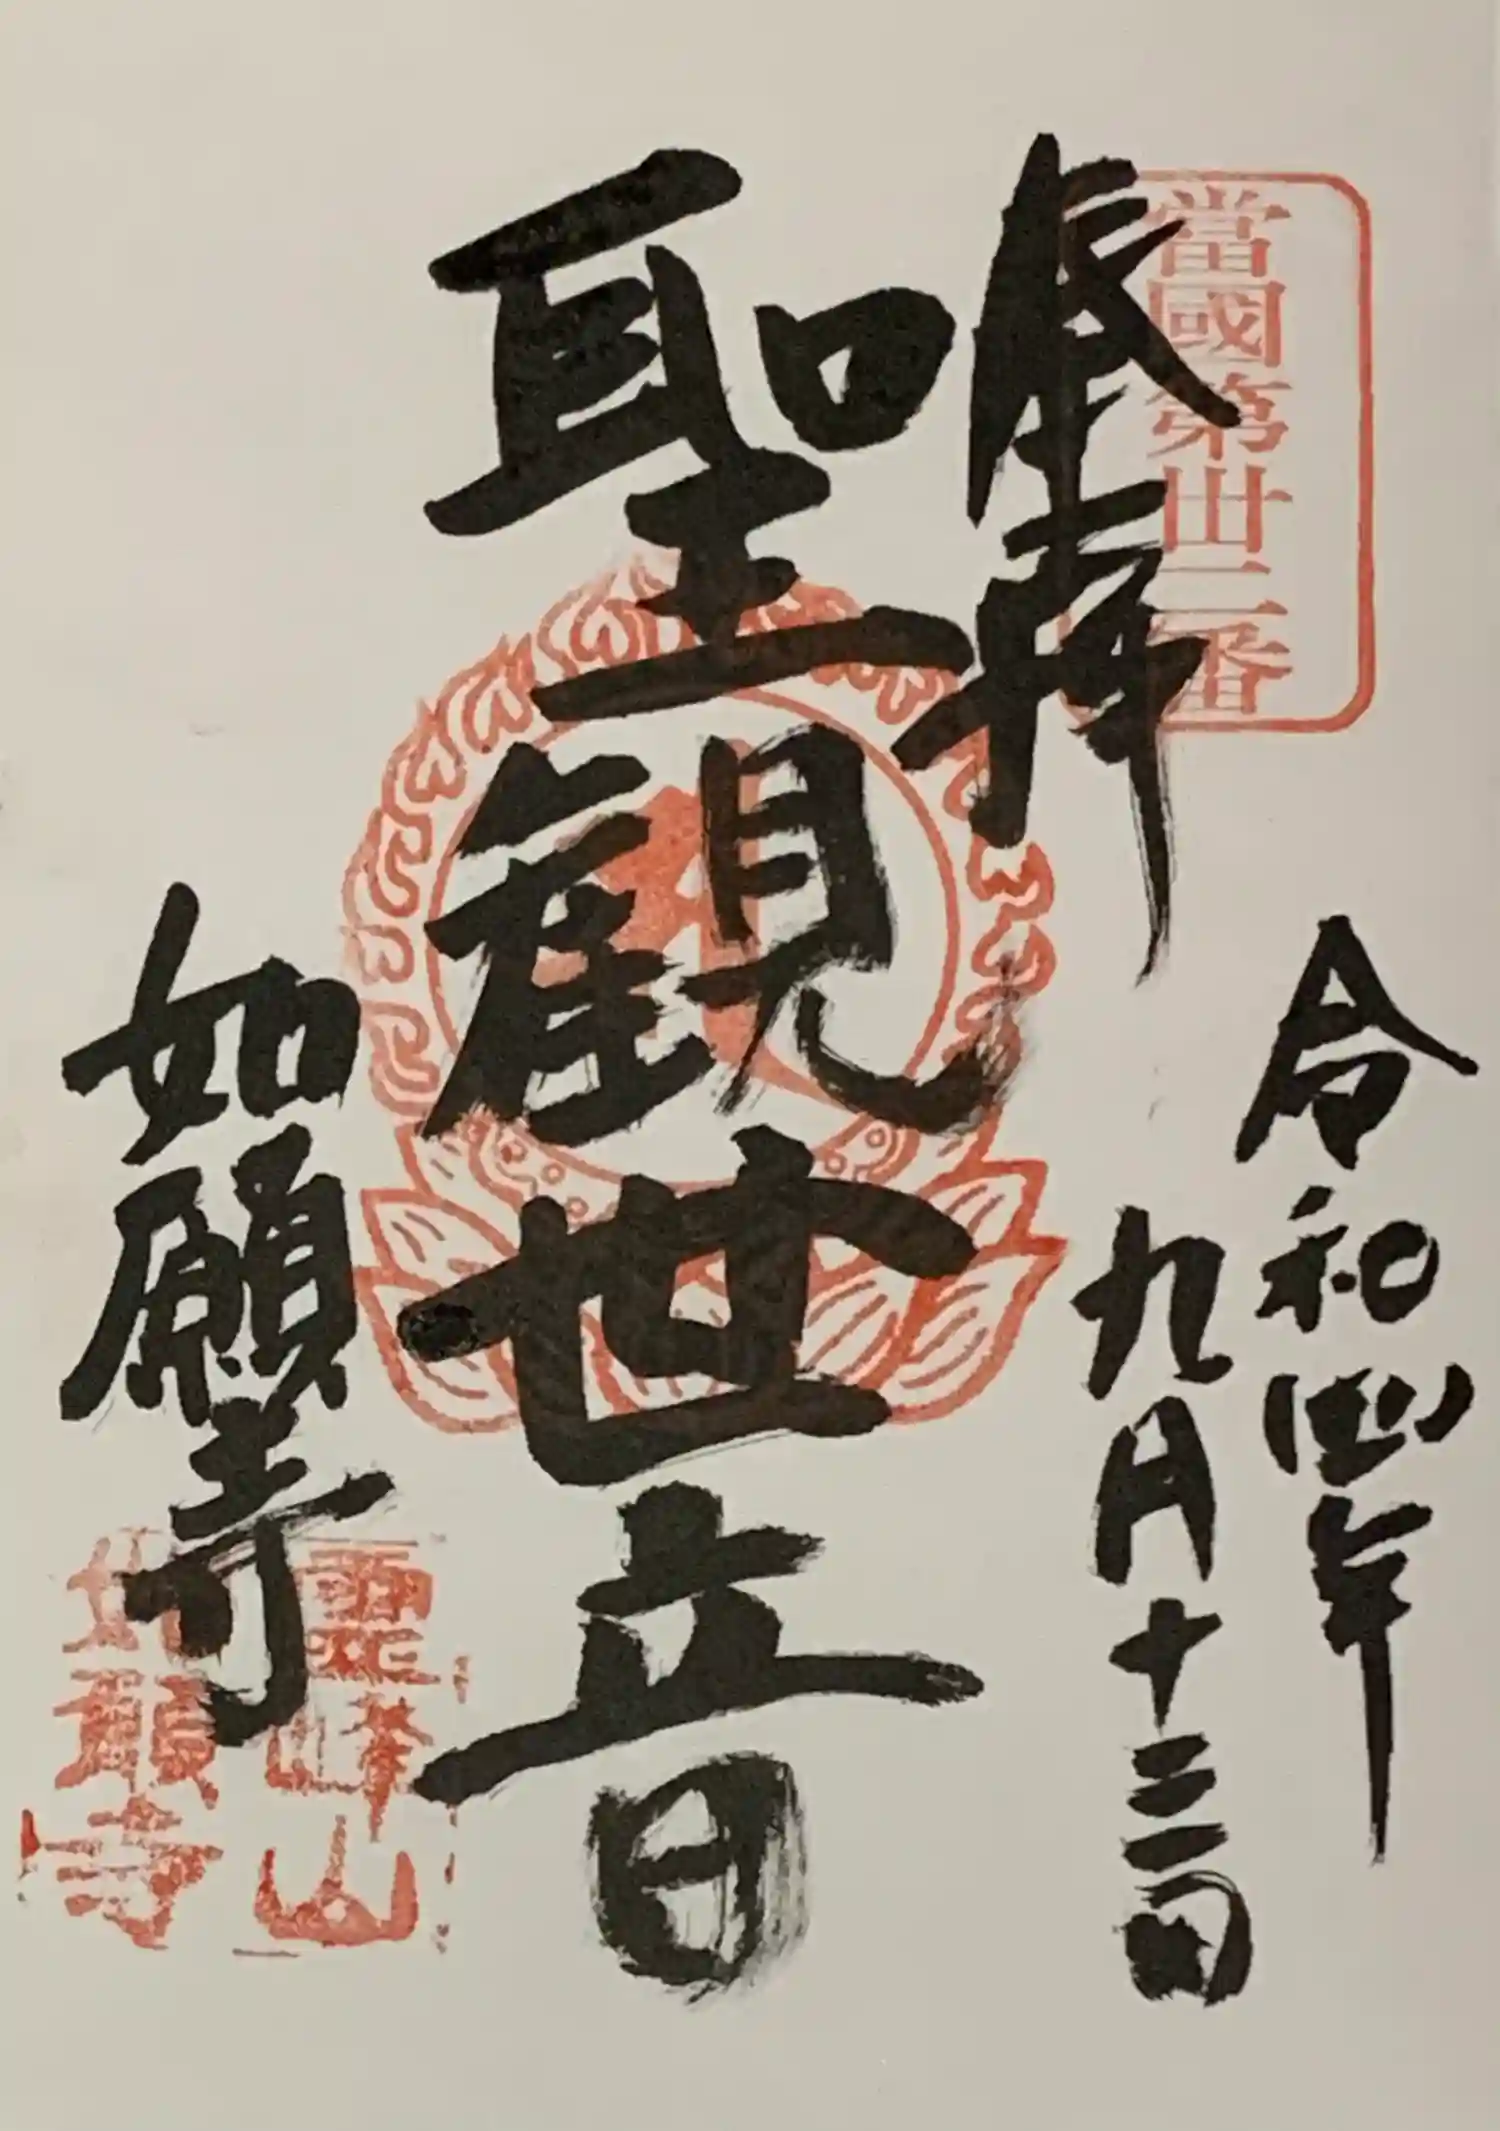 當國第卅二番
奉拝
令和四年
九月十三日
聖観世音
如願寺
霊峰山
如願寺